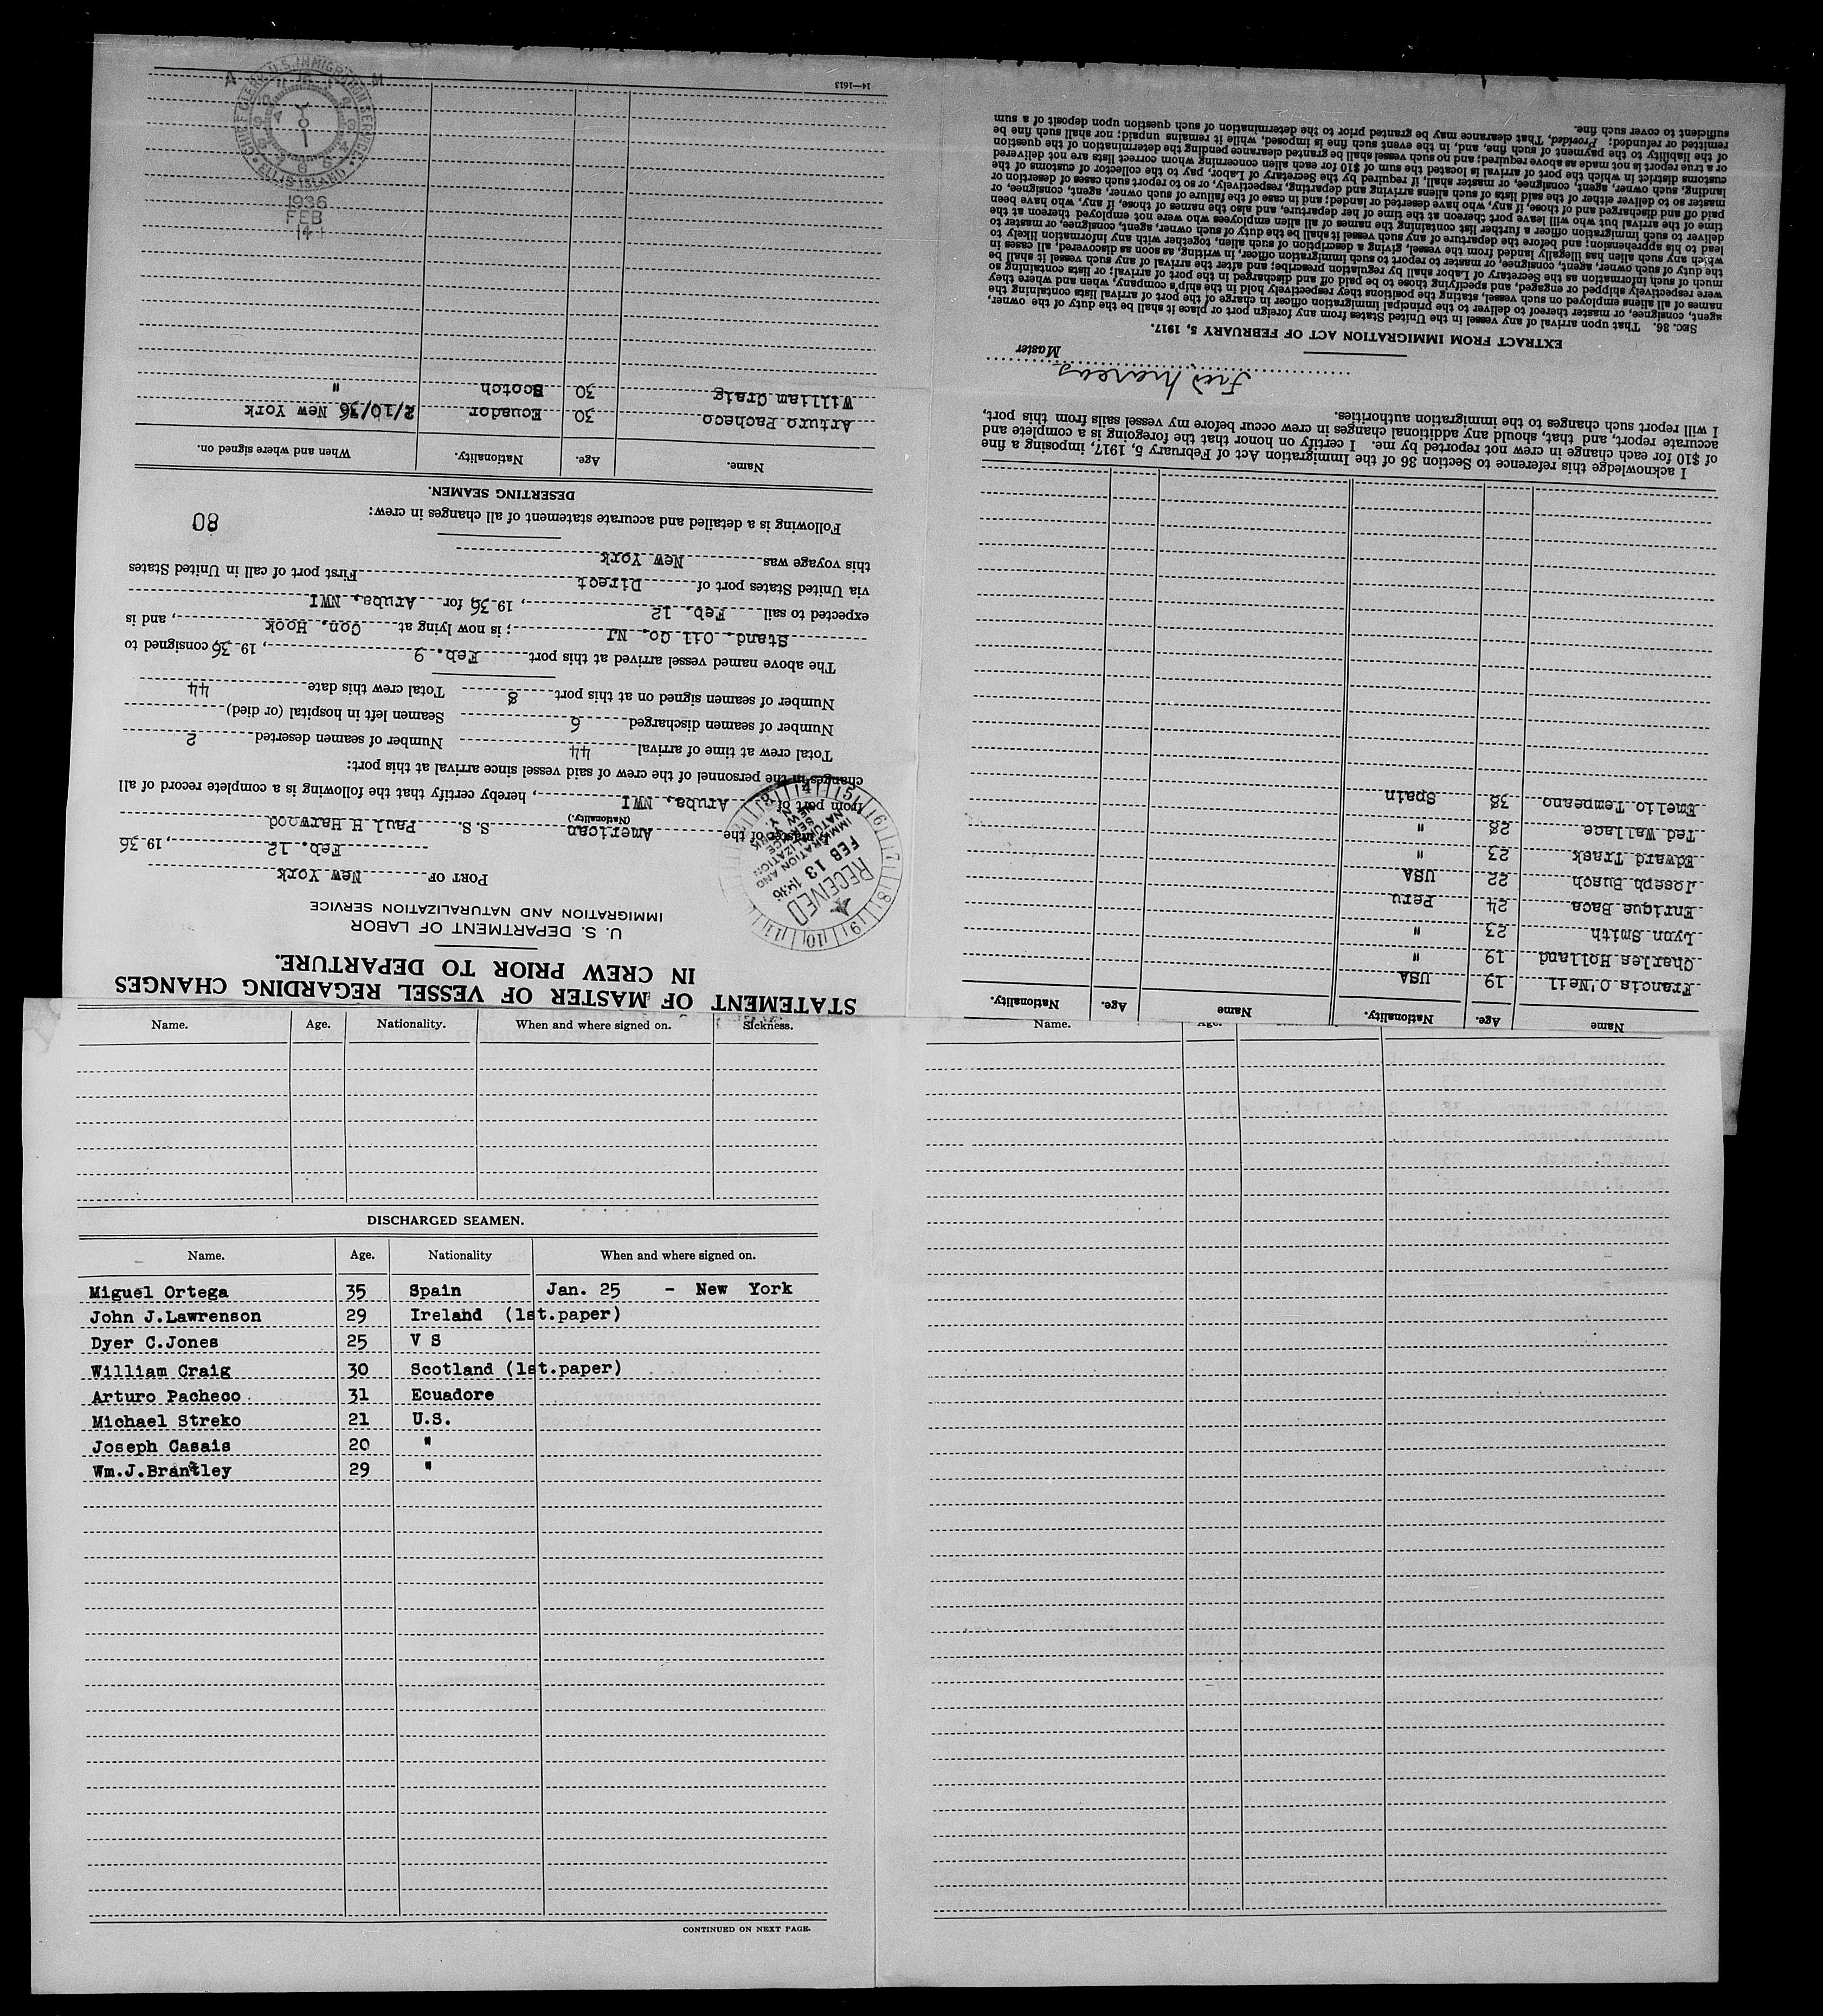 STATEMENT OF MASTER OF VESSEL REGARDING CHANGES
IN CREW PRIOR TO DEPARTURE.
U. S. DEPARTMENT OF LABOR
IMMIGRATION AND NATURALIZATION SERVICE
RECEIVED
FEB 13 1936
IMMIGRATION AND
NATURALIZATION
SERVICE
NEW YORK
N. Y.
PORT OF New York
Feb. 12, 1936
master of the American S.S. Paul H Harwood
(Nationality.)
from port of Aruba, NWI, hereby certify that the following is a complete record of all
changes in the personnel of the crew of said vessel since arrival at this port:
Total crew at time of arrival 44 Number of seamen deserted 2
Number of seamen discharged 6 Seamen left in hospital (or died)
Number of seamen signed on at this port 8 Total crew this date 44
The above named vessel arrived at this port Feb. 9, 1936 consigned to
Stand. Oil Co. NJ; is now lying at Con. Hook, and is
expected to sail Feb. 12, 1936 for Aruba, NWI
via United States port of Direct First port of call in United States
this voyage was New York
Following is a detailed and accurate statement of all changes in crew: 80
DESERTING SEAMEN.
Name. Age. Nationality. When and where signed on.
Arturo Pacheco 30 Ecuador 2/10/36 New York
William Craig 30 Scotch "
CHIEF CLERK U.S. IMMIGRATION SERVICE
ELLIS ISLAND
A M
1936
FEB
14
14—1613
Name Age. Nationality. Name Age. Nationality.
Francis O'Neil 19 USA
Charles Holland 19 "
Lynn Smith 23 "
Enrique Baca 24 Peru
Joseph Busch 22 USA
Edward Trask 23 "
Ted Wallace 28 "
Emelio Tempeano 38 Spain
I acknowledge this reference to Section 36 of the Immigration Act of February 5, 1917, imposing a fine
of $10 for each change in crew not reported by me. I certify on honor that the foregoing is a complete and
accurate report, and that, should any additional changes in crew occur before my vessel sails from this port,
I will report such changes to the immigration authorities.
Fred Marcus
Master
EXTRACT FROM IMMIGRATION ACT OF FEBRUARY 5, 1917.
SEC. 36. That upon arrival of any vessel in the United States from any foreign port or place it shall be the duty of the owner,
agent, consignee, or master thereof to deliver to the principal immigration officer in charge of the port of arrival lists containing the
names of all aliens employed on such vessel, stating the positions they respectively hold in the ship's company, when and where they
were respectively shipped or engaged, and specifying those to be paid off and discharged in the port of arrival; or lists containing so
much of such information as the Secretary of Labor shall by regulation prescribe; and after the arrival of any such vessel it shall be
the duty of such owner, agent, consignee, or master to report to such immigration officer, in writing, as soon as discovered, all cases in
which any such alien has illegally landed from the vessel, giving a description of such alien, together with any information likely to
lead to his apprehension; and before the departure of any such vessel it shall be the duty of such owner, agent, consignee, or master to
deliver to such immigration officer a further list containing the names of all alien employees who were not employed thereon at the
time of the arrival but who will leave port thereon at the time of her departure, and also the names of those, if any, who have been
paid off and discharged and of those, if any, who have deserted or landed; and in case of the failure of such owner, agent, consignee, or
master so to deliver either of the said lists of such aliens arriving and departing, respectively, or so to report such cases of desertion or
landing, such owner, agent, consignee, or master shall, if required by the Secretary of Labor, pay to the collector of customs of the
customs district in which the port of arrival is located the sum of $10 for each alien concerning whom correct lists are not delivered
or a true report is not made as above required; and no such vessel shall be granted clearance pending the determination of the question
of the liability to the payment of such fine, and, in the event such fine is imposed, while it remains unpaid; nor shall such fine be
remitted or refunded; Provided, That clearance may be granted prior to the determination of such question upon deposit of a sum
sufficient to cover such fine.
Name. Age. Nationality. When and where signed on. Sickness.
DISCHARGED SEAMEN.
Name. Age. Nationality When and where signed on.
Miguel Ortega 35 Spain Jan. 25 - New York
John J.Lawrenson 29 Ireland (1st.paper)
Dyer C.Jones 25 V S
William Craig 30 Scotland (1st.paper)
Arturo Pacheco 31 Ecuadore
Michael Streko 21 U.S.
Joseph Casais 20 "
Wm.J.Brantley 29 "
CONTINUED ON NEXT PAGE.
Name. Age.